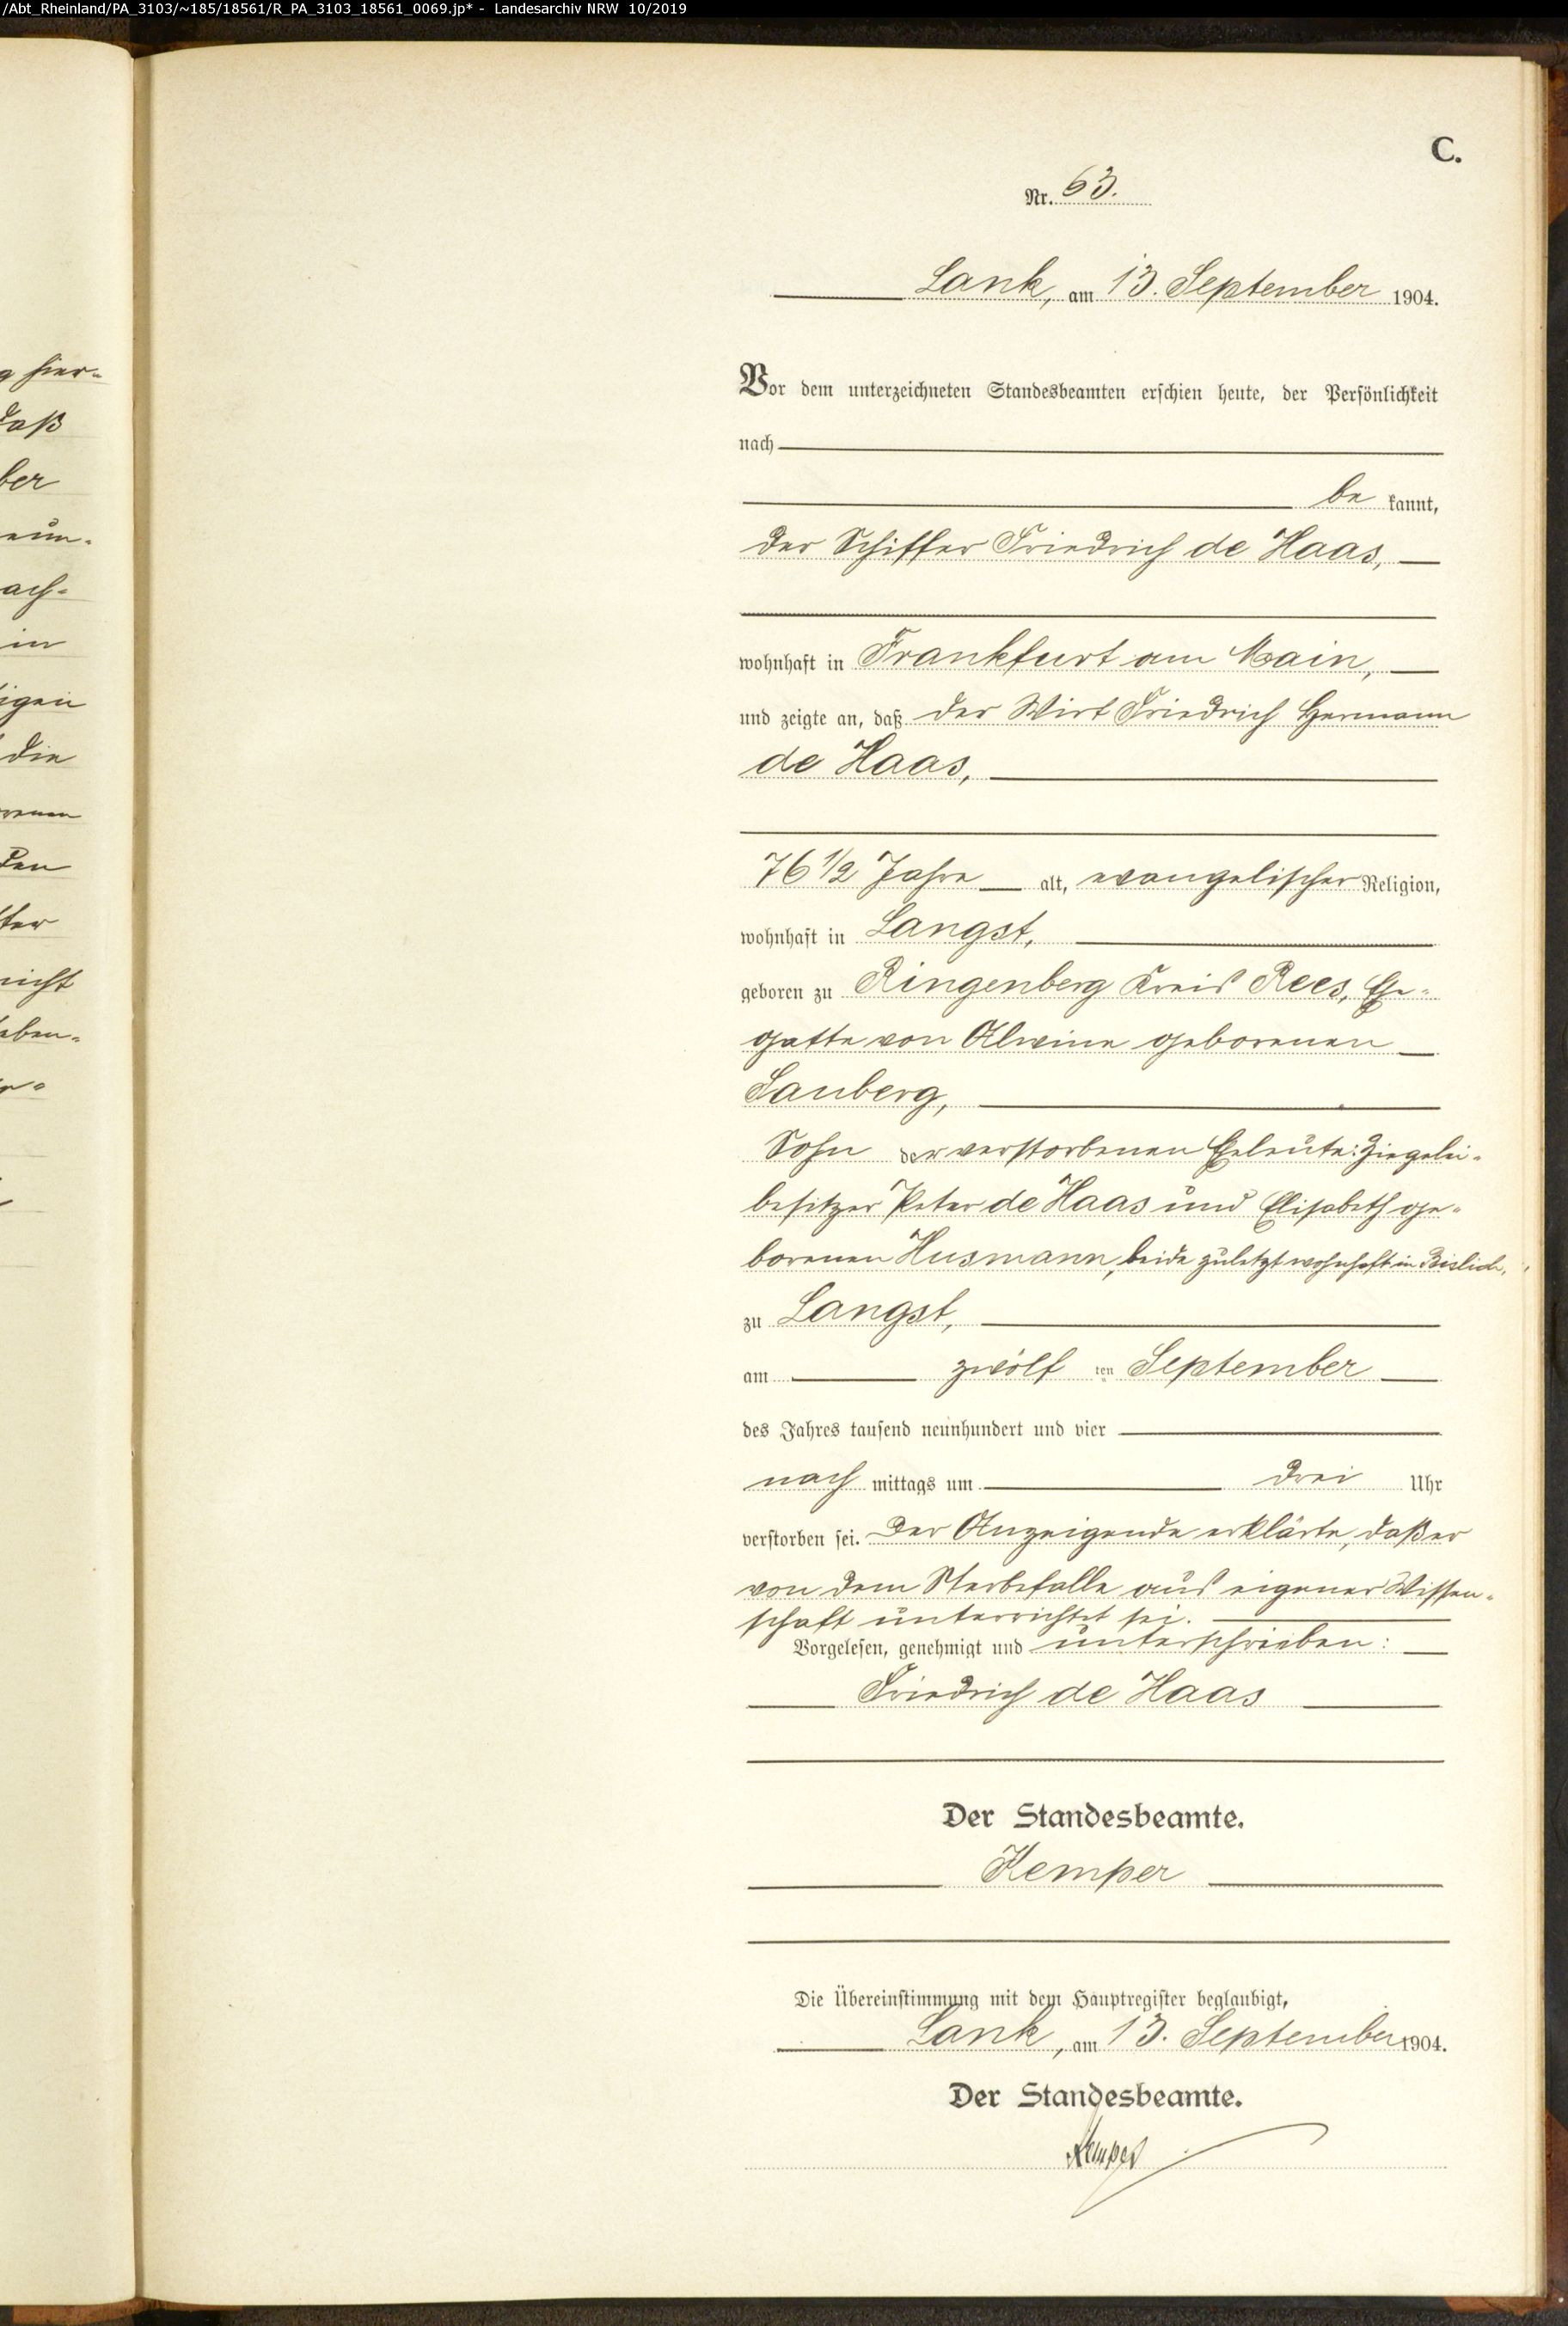 /Abt_Rheinland/PA_3103/~185/18561/R_PA_3103_18561_0069.jp* - Landesarchiv NRW 10/2019
hier-
daß
ber
neun-
nach-
in
igen
die
den
ter
nicht
eben-
C.
Nr. 63.
Lank, am 13. September 1904.
Vor dem unterzeichneten Standesbeamten erschien heute, der Persönlichkeit
nach
be kannt,
der Schiffer Friedrich de Haas,
wohnhaft in Frankfurt am Main,
und zeigte an, daß der Wirt Friedrich Hermann
de Haas,
76 1/2 Jahre alt, evangelischer Religion,
wohnhaft in Langst,
geboren zu Ringenberg Kreis Rees, Ehe-
gatte von Alwine geborenen
Sauberg,
Sohn der verstorbenen Eheleute: Ziegelei-
besitzer Peter de Haas und Elisabeth ge-
borenen Husmann, beide zuletzt wohnhaft in Bislich,
zu Langst,
am zwölf ten September
des Jahres tausend neunhundert und vier
nach mittags um drei Uhr
verstorben sei. Der Anzeigende erklärte, daß er
von dem Sterbefalle aus eigener Wissen-
schaft unterrichtet sei.
Vorgelesen, genehmigt und unterschrieben:
Friedrich de Haas
Der Standesbeamte.
Kemper
Die Übereinstimmung mit dem Hauptregister beglaubigt,
Lank, am 13. September 1904.
Der Standesbeamte.
Kemper